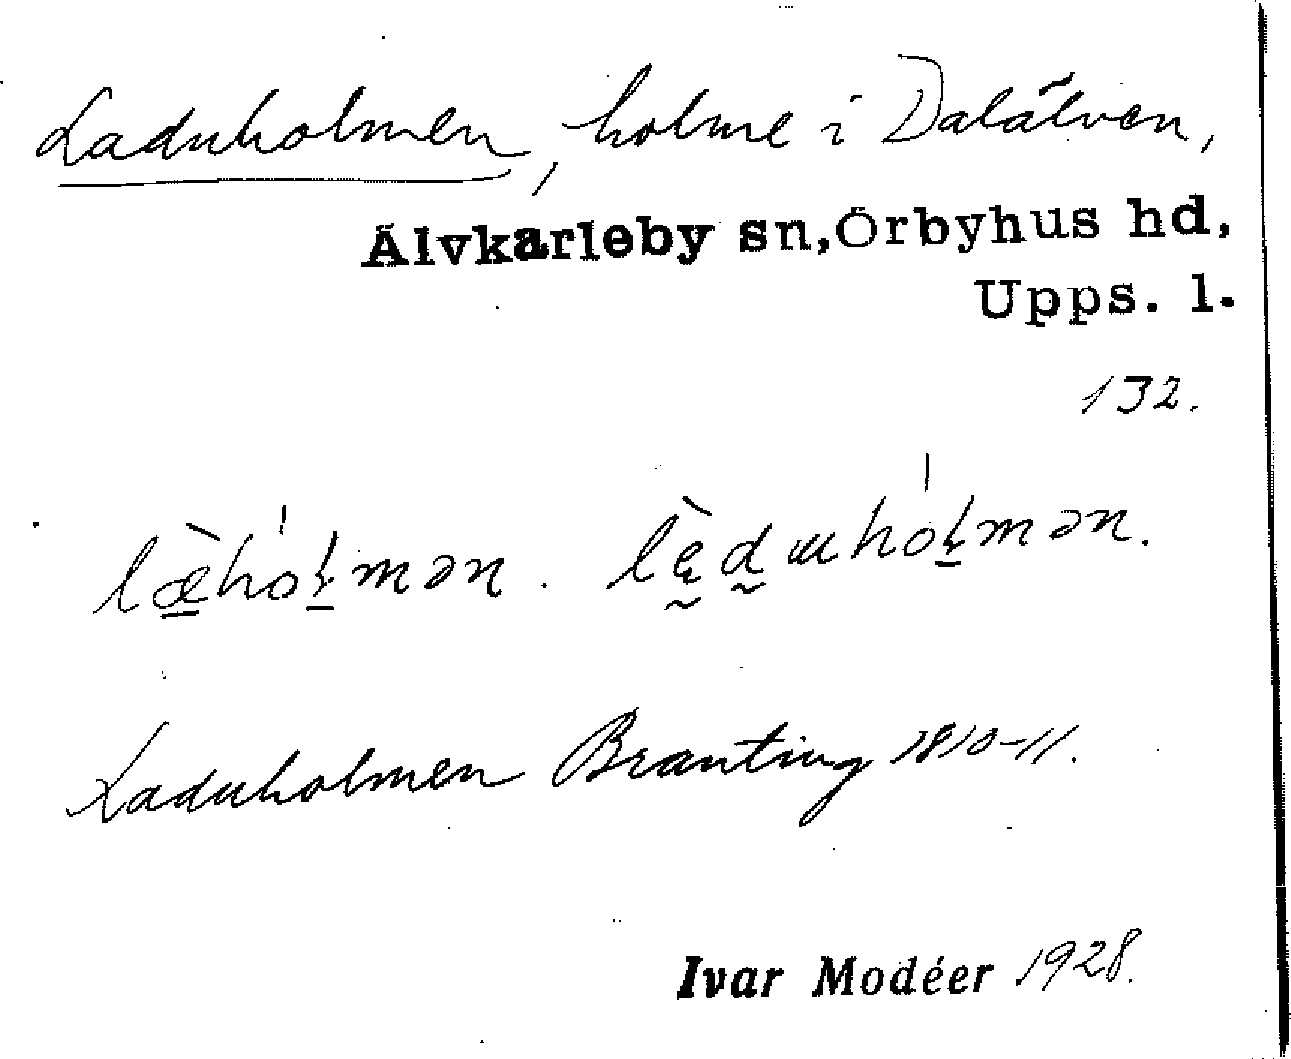 Laduholmen, holme i Dalälven,
Älvkarleby sn, Örbyhus hd,
Upps. l.
132.
Laduholmen Branting 1810-11.
Ivar Modéer 1928.